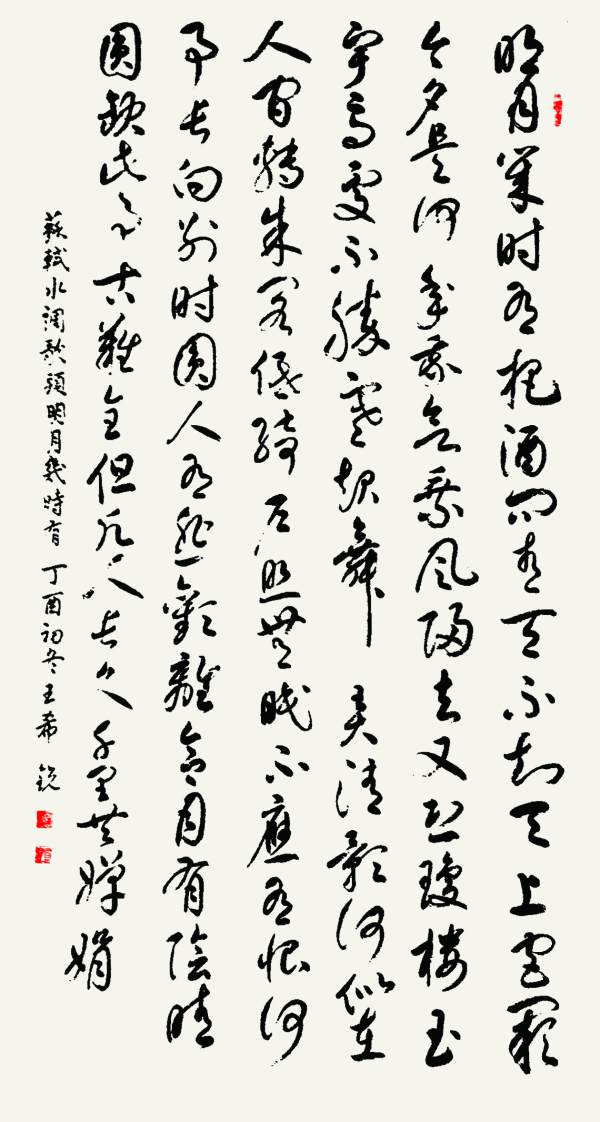 明月幾时有把酒问青天不知天上宫阙
今夕是何年我欲乘风归去又恐瓊楼玉
宇高處不勝寒起舞弄清影何似在
人间轉朱阁低绮户照無眠不應有恨何
事长向别时圆人有悲歡離合月有陰晴
圓缺此事古難全但願人长久千里共嬋娟
蘇軾水调歌頭明月幾時有 丁酉初冬王希锐